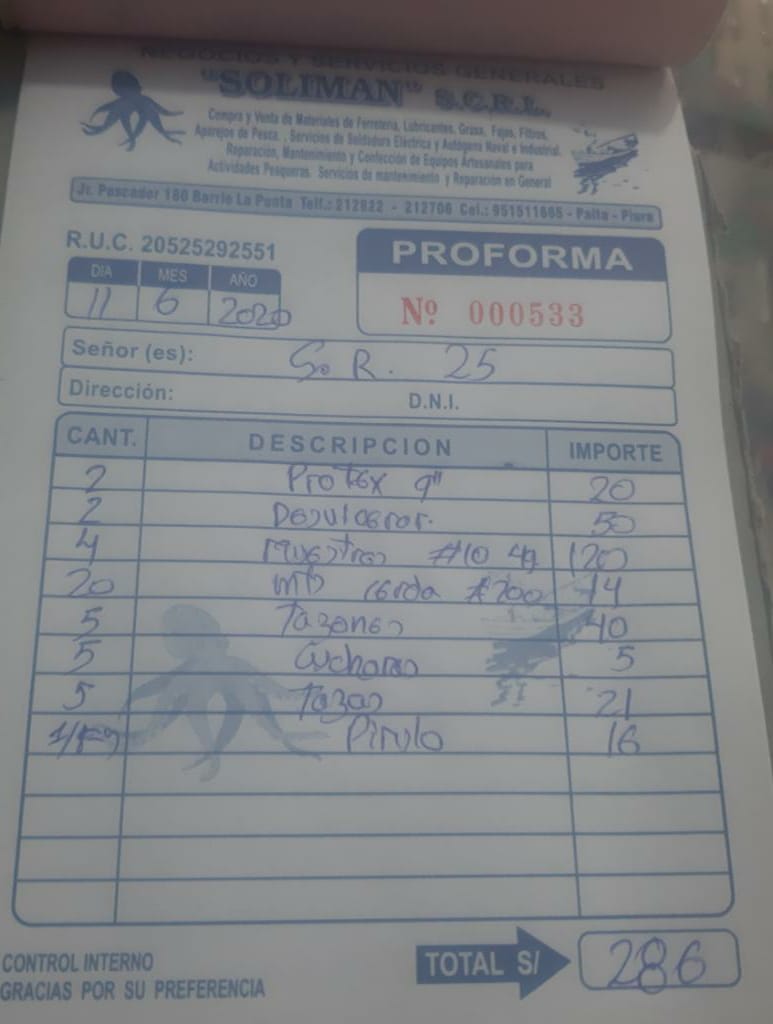 NEGOCIOS Y SERVICIOS GENERALES
"SOLIMAN" S.C.R.L.
Compra y Venta de Materiales de Ferretería, Lubricantes, Grasa, Fajas, Filtros,
Aparejos de Pesca, Servicios de Soldadura Eléctrica y Autógena Naval e Industrial.
Reparación, Mantenimiento y Confección de Equipos Artesanales para
Actividades Pesqueras. Servicios de mantenimiento y Reparación en General
Jr. Pescador 160 Barrio La Punta Telf.: 212822 - 212706 Cel.: 951511665 - Paita - Piura
R.U.C. 20525292551
PROFORMA
DIA MES AÑO
11 6 2020
Nº 000533
Señor (es): S. R. 25
Dirección: D.N.I.
CANT. DESCRIPCION IMPORTE
2 Protex 9" 20
2 50
4 #10 120
20 mts #700 14
5 Tazones 40
5 Cucharas 5
5 Tazas 21
Pirulo 16
CONTROL INTERNO
GRACIAS POR SU PREFERENCIA
TOTAL S/ 286